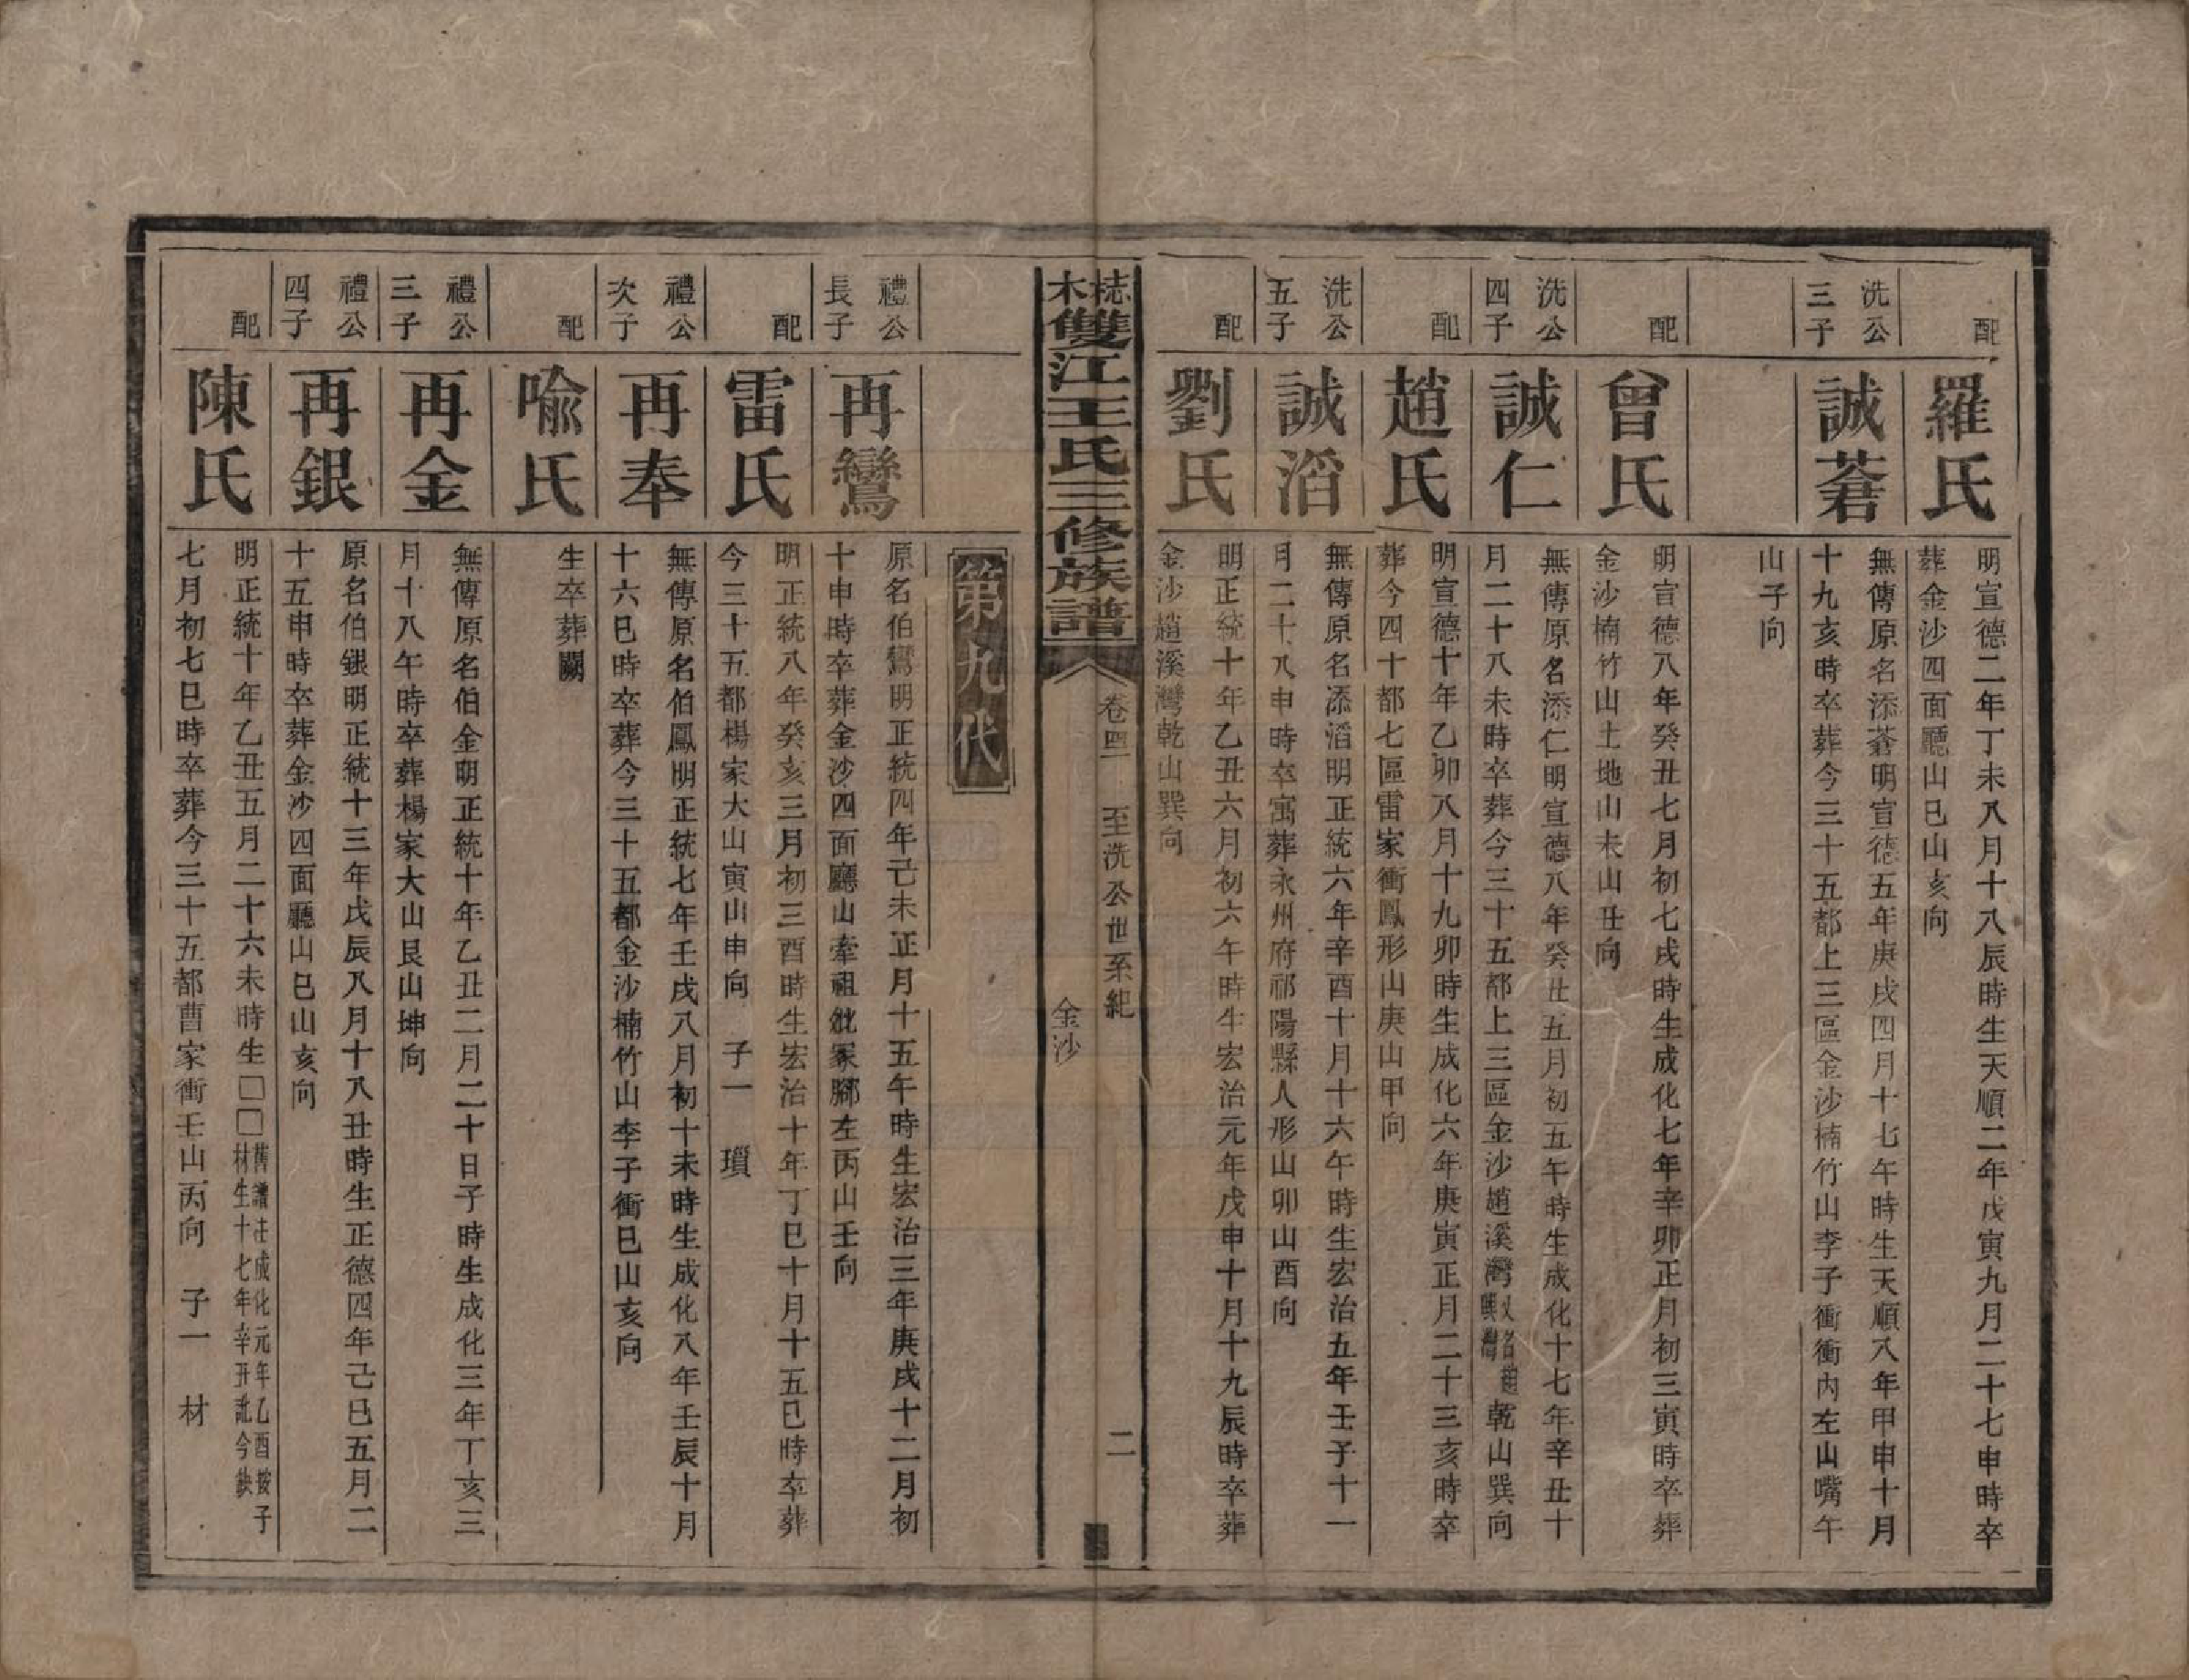 配
羅氏
明宣德二年丁未八月十八辰時生天順二年戊寅九月二十七申時卒
葬金沙四面廳山巳山亥向
洗公
三子
誠蒼
無傳原名添蒼明宣德五年庚戌四月十七午時生天順八年甲申十月
十九亥時卒葬今三十五都上三區金沙楠竹山李子衝衝內左山嘴午
山子向
配
曾氏
明宣德八年癸丑七月初七戌時生成化七年辛卯正月初三寅時卒葬
金沙楠竹山土地山未山丑向
洗公
四子
誠仁
無傳原名添仁明宣德八年癸丑五月初五午時生成化十七年辛丑十
月二十八未時卒葬今三十五都上三區金沙趙溪灣又名趙興灣乾山巽向
配
趙氏
明宣德十年乙卯八月十九卯時生成化六年庚寅正月二十三亥時卒
葬今四十都七區雷家衝鳳形山庚山甲向
洗公
五子
誠滔
無傳原名添滔明正統六年辛酉十月十六午時生宏治五年壬子十一
月二十八申時卒寓葬永州府祁陽縣人形山卯山酉向
配
劉氏
明正統十年乙丑六月初六午時生宏治元年戊申十月十九辰時卒葬
金沙趙溪灣乾山巽向
梽木雙江王氏三修族譜
卷四
至洗公世系紀
金沙
二
第九代
禮公
長子
再鸞
原名伯鸞明正統四年己未正月十五午時生宏治三年庚戌十二月初
十申時卒葬金沙四面廳山牽祖妣冢腳左丙山壬向
配
雷氏
明正統八年癸亥三月初三酉時生宏治十年丁巳十月十五巳時卒葬
今三十五都楊家大山寅山申向 子一 瓆
禮公
次子
再奉
無傳原名伯鳳明正統七年壬戌八月初十未時生成化八年壬辰十月
十六巳時卒葬今三十五都金沙楠竹山李子衝巳山亥向
配
喻氏
生卒葬闕
禮公
三子
再金
無傳原名伯金明正統十年乙丑二月二十日子時生成化三年丁亥三
月十八午時卒葬楊家大山艮山坤向
禮公
四子
再銀
原名伯銀明正統十三年戊辰八月十八丑時生正德四年己巳五月二
十五申時卒葬金沙四面廳山巳山亥向
配
陳氏
明正統十年乙丑五月二十六未時生□□舊譜注成化元年乙酉按子
材生十七年辛丑訛今缺
七月初七巳時卒葬今三十五都曹家衝壬山丙向 子一 材